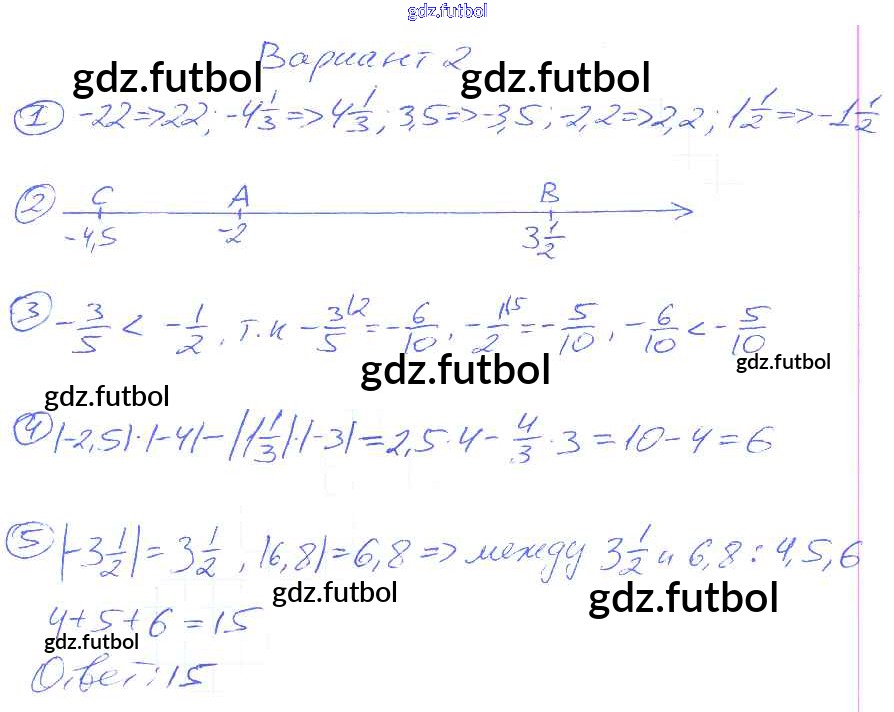 gdz.futbol
Вариант 2
gdz.futbol gdz.futbol
① -22=>22; -4 1/3 => 4 1/3; 3,5=>-3,5; -2,2=>2,2; 1 1/2 => -1 1/2
② C A B
-4,5 -2 3 1/2
③ -3/5 < -1/2, т.к -3/5 |2 = -6/10, -1/2 |5 = -5/10, -6/10 < -5/10
gdz.futbol gdz.futbol
gdz.futbol
④ |-2,5|·|-4|-|1 1/3|·|-3|=2,5·4-4/3·3=10-4=6
⑤ |-3 1/2|=3 1/2, |6,8|=6,8 => между 3 1/2 и 6,8: 4,5,6
gdz.futbol gdz.futbol
4+5+6=15
gdz.futbol
Ответ: 15